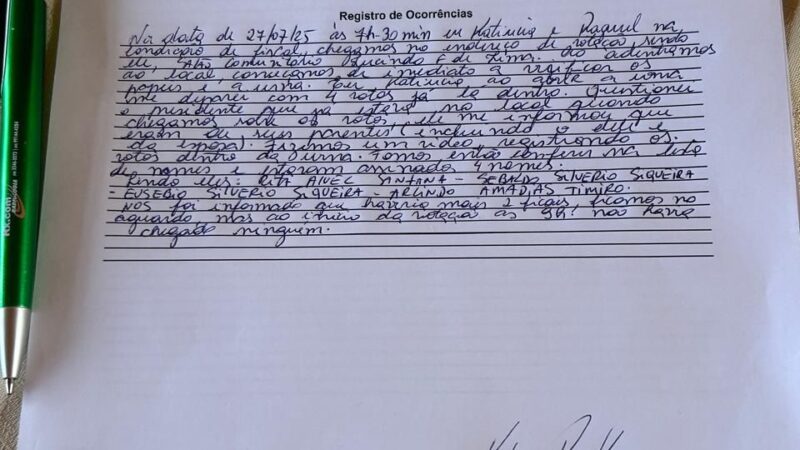 Registro de Ocorrências
Na data de 27/07/25 às 7h-30min eu Katiucia e Raquel na
condição de fiscal, chegamos no endereço de votação, sendo
ele, Alto Comunitário E de Lima. ao adentrarmos
ao local, começamos de imediato a verificar os
papeis e a urna. Eu Katiucia ao abrir a urna
me deparei com 4 votos já lá dentro. Questionei
o presidente que já estava no local quando
chegamos sobre os votos, ele me informou que
eram de seus parentes (incluindo o dele e
da esposa). Fizemos um video, registrando os
votos dentro da urna. Fomos então conferir na lista
de nomes e estavam assinados 4 nomes.
Sendo eles: RITA SANTANA - SEBALDO SILVERIO SIQUEIRA
EUSEBIO SILVERIO SIQUEIRA - ARLINDO AMADIAS TIMIRO.
NOS foi informado que haveria mais 2 fiscais, ficamos no
aguardo, mas ao inicio da votação as 9h! não havia
chegado ninguém.